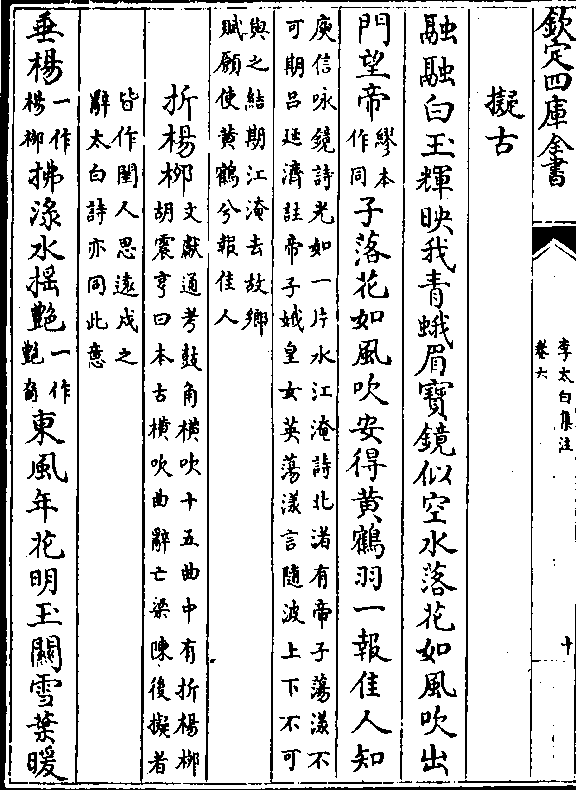 欽定四庫全書
李太白集注
卷六
十
擬古
融融白玉輝映我青蛾眉寶鏡似空水落花如風吹出
門望帝繆本作同子落花如風吹安得黄鶴羽一報佳人知
庾信咏鏡詩光如一片水江淹詩北渚有帝子蕩漾不
可期吕延濟註帝子娥皇女英蕩漾言隨波上下不可
與之結期江淹去故鄉
賦願使黄鶴兮報佳人
折楊栁文獻通考鼓角横吹十五曲中有折楊栁
胡震亨曰本古横吹曲辭亡梁陳後擬者
皆作閨人思遠戍之
辭太白詩亦同此意
垂楊一作楊栁拂渌水揺艷一作艷裔東風年花明玉闗雪葉暖